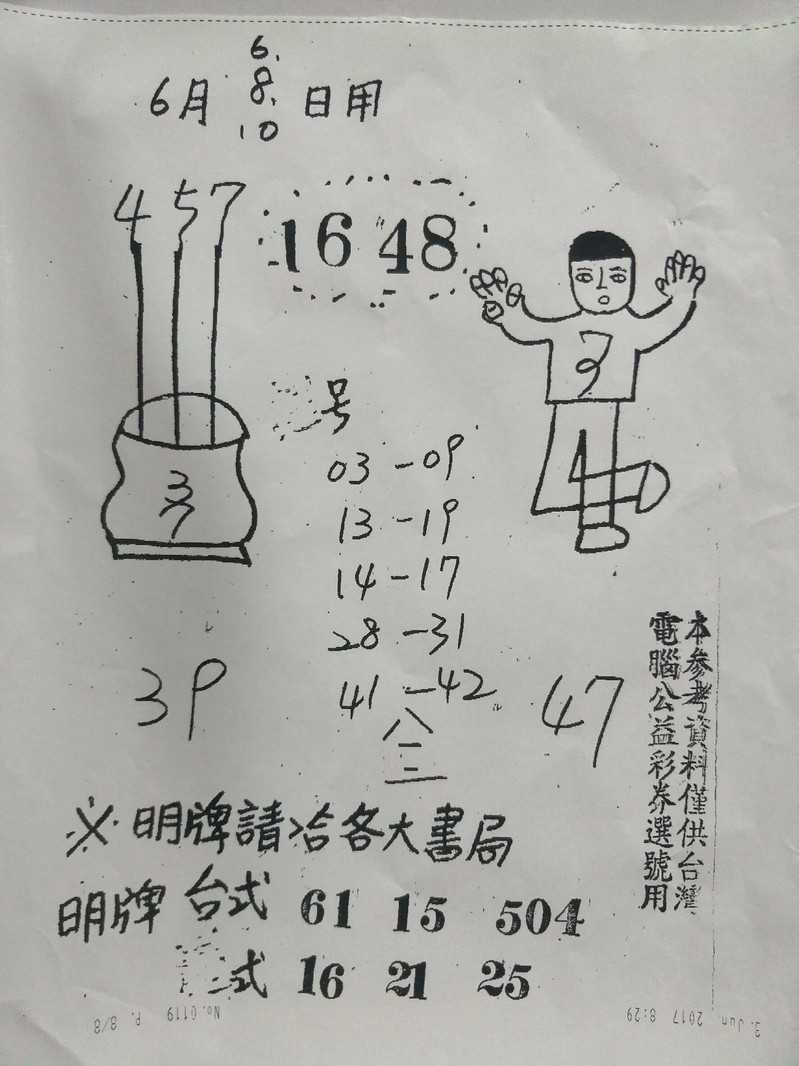 6月 6. 8. 10 日用
4 5 7
16 48
号
03-09
13-19
14-17
28-31
41-42
八
二
37
39
47
本参考資料僅供台灣
電腦公益彩券選號用
※明牌請洽各大書局
明牌 台式 61 15 504
式 16 21 25
No. 0119 P. 8/8
3. Jun. 2017 8:29